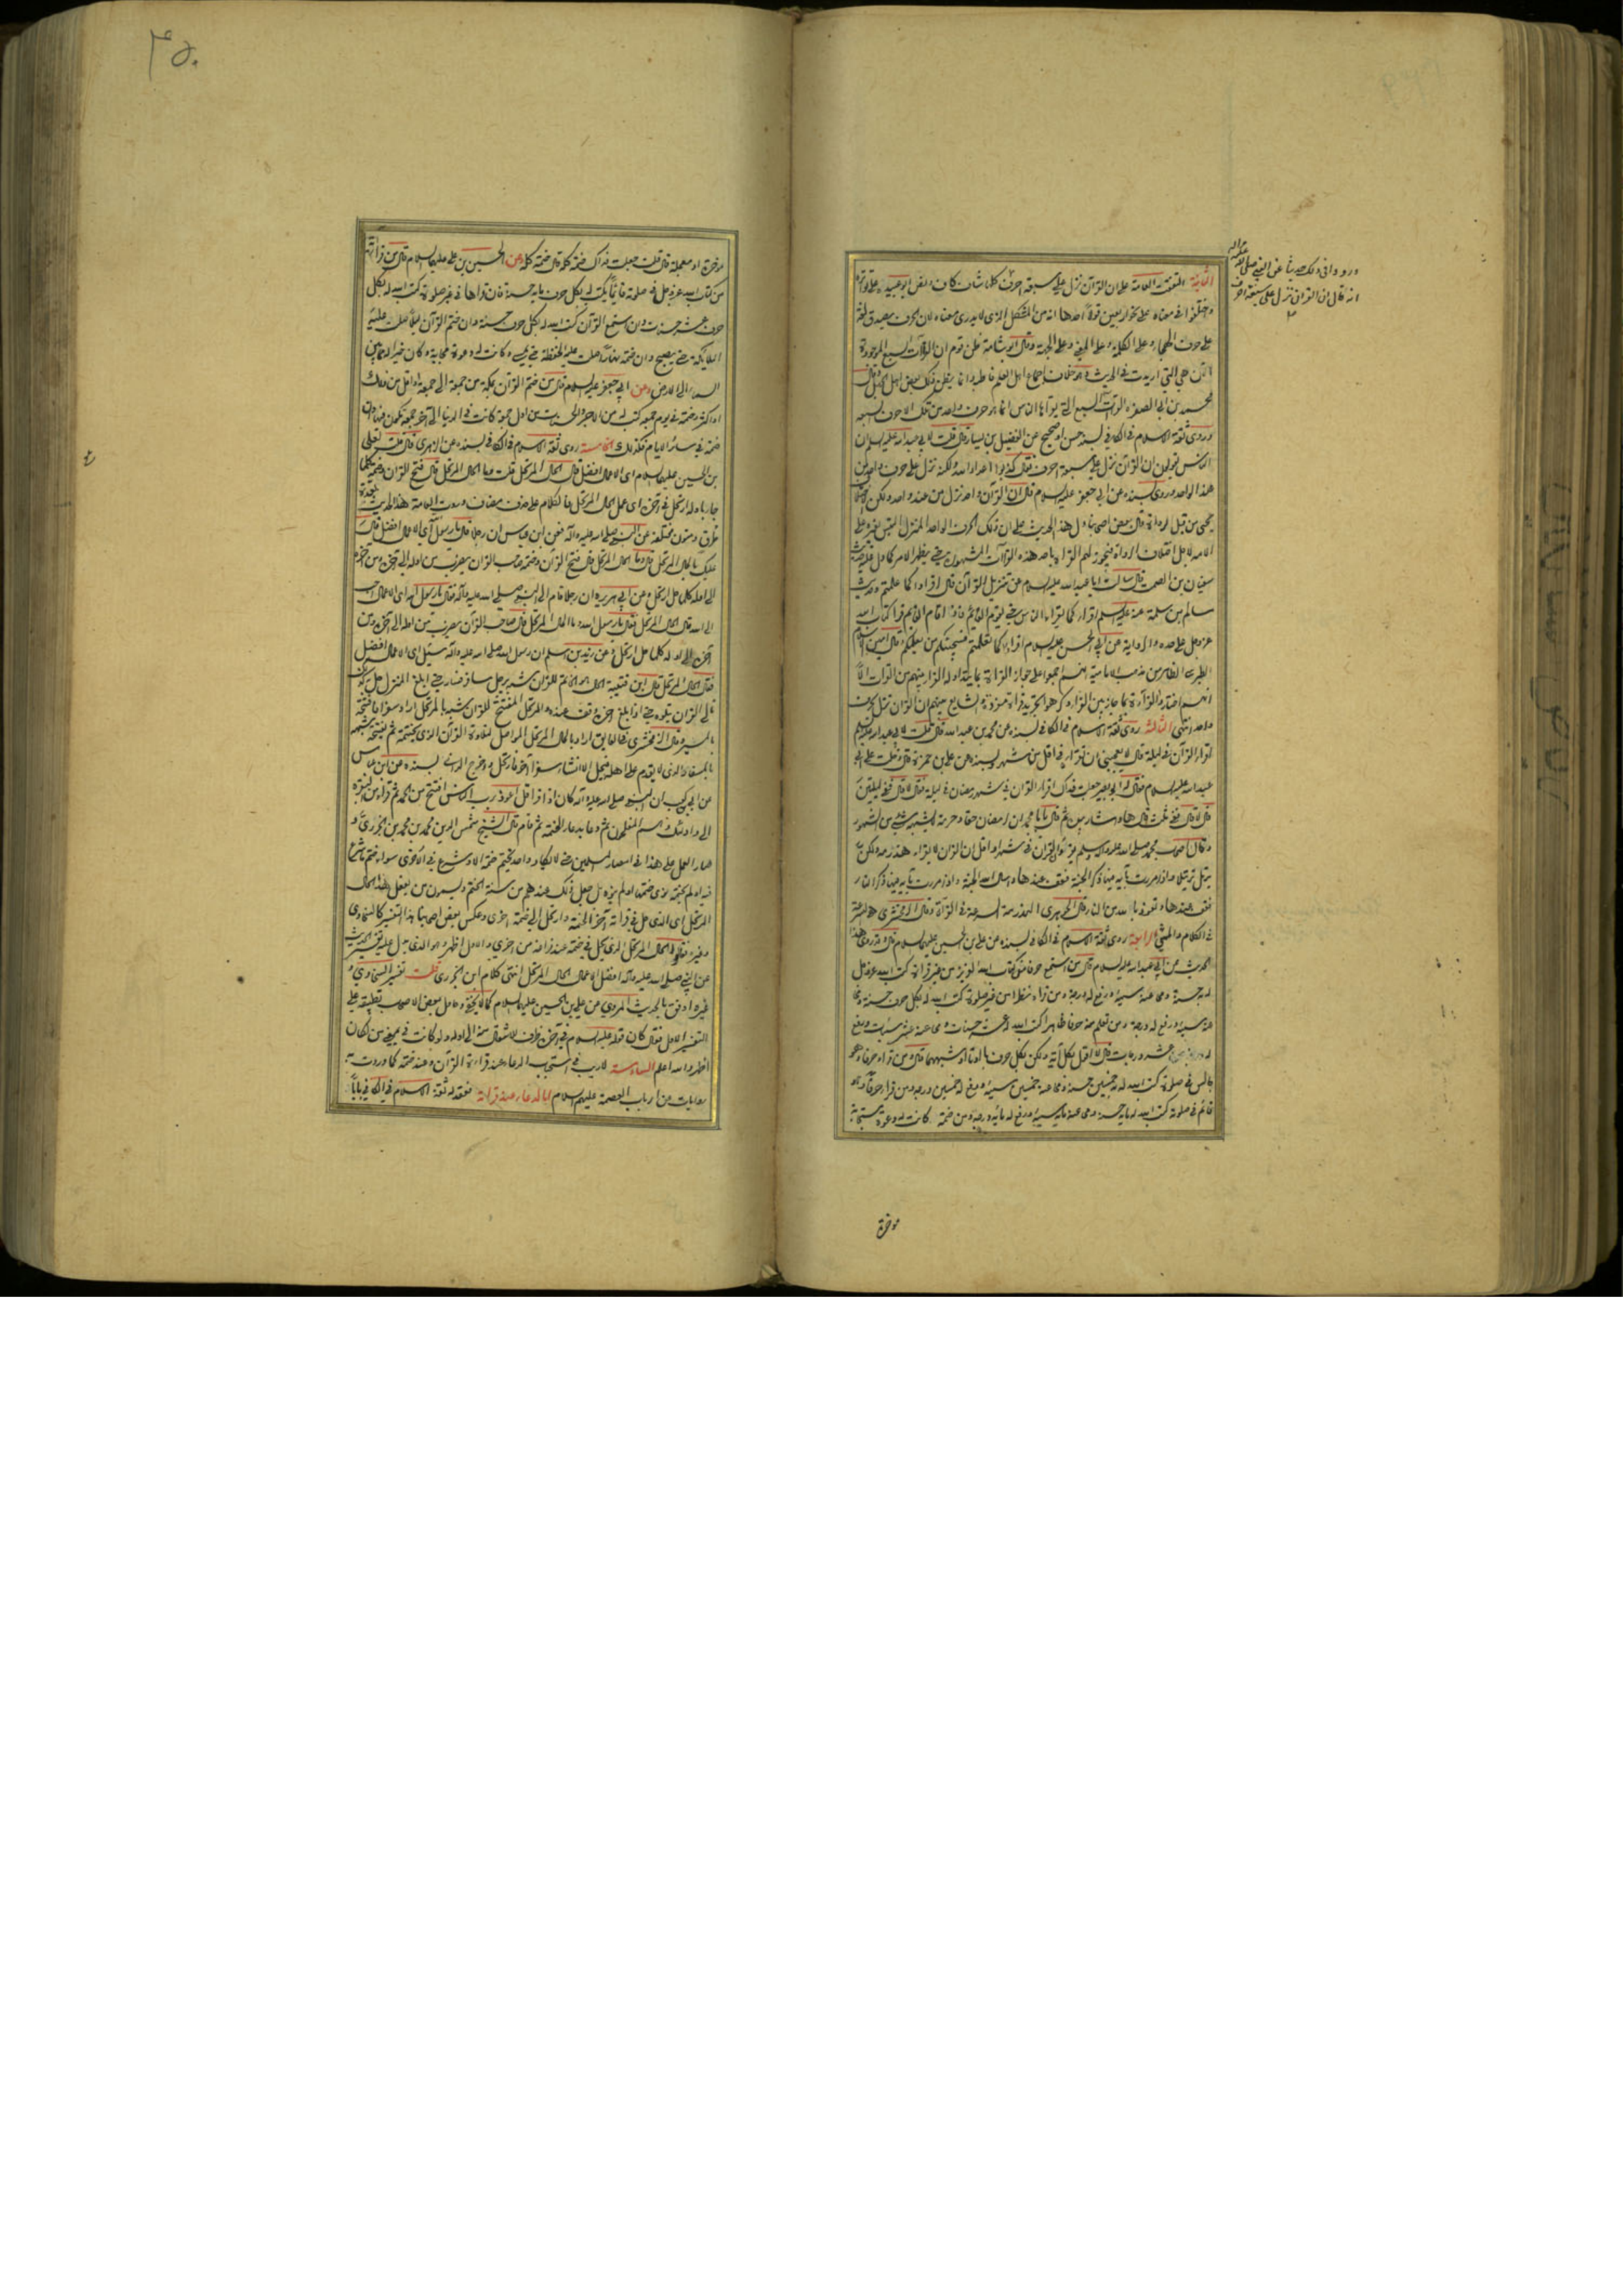 الثانية اتفقت العامة على ان القرآن نزل على سبعة احرف كلها شاف كاف وادعى ابو عبيدة على تواتره
واختلفوا في معناه على نحو اربعين قولا احدها انه من المشكل الذي لا يدرى معناه لان الحرف يصدق لغة
على حرف الهجاء وعلى الكلمة وعلى المعنى وعلى الجهة وقال ابو شامة ظن قوم ان القراآت السبع الموجودة
الآن هي التي اريدت في الحديث وهو خلاف اجماع اهل العلم قاطبة وانما يظن ذلك بعض اهل الجهل وقال
محمد بن ابي الصفرة القراآت السبع التي يقرأها الناس انما هو حرف واحد من تلك الاحرف السبعة
وروى ثقة الاسلام في الكافي بسند حسن او صحيح عن الفضيل بن يسار قال قلت لابي عبد الله عليه السلام ان
الناس يقولون ان القرآن نزل على سبعة احرف فقال كذبوا اعداء الله ولكنه نزل على حرف واحد من
عند الواحد وروى بسنده عن ابي جعفر عليه السلام قال ان القرآن واحد نزل من عند واحد ولكن الاختلاف
يجيء من قبل الرواة قال بعض اصحابنا دل هذا الحديث على ان ذلك الحرف الواحد المنزل التبس بغيره على
الامة لاجل اختلاف الرواة فيجوز لهم القراءة باحد هذه القراآت المشهورة حتى يظهر الامر كما دل عليه حديث
سفيان بن السمط قال سالت ابا عبد الله عليه السلام عن تنزيل القرآن قال اقراوا كما علمتم وحديث
سالم بن سلمة عنه عليه السلم اقراء كما يقراء الناس حتى يقوم القائم فاذا قام القائم قرا كتاب الله
عز وجل على حده والرواية عن ابي الحسن عليه السلام اقراوا كما تعلمتم فسيجيئكم من يعلمكم وقال امين الاسلام
الطبرسي الظاهر من مذهب الامامية انهم اجمعوا على جواز القراءة بما يتداوله القراء بينهم من القراآت الا
انهم اختاروا القراءة بما جاز بين القراء وكرهوا تجريد قراءة مفردة والشايع بينهم ان القرآن نزل بحرف
واحد انتهى الثالثة روى ثقة الاسلام في الكافي بسنده عن محمد بن عبد الله قال قلت لابي عبد الله عليه السلم
اقراء القرآن في ليلة قال لا يعجبني ان تقراه في اقل من شهر وبسنده عن علي بن ابي حمزة قال دخلت على ابي
عبد الله عليه السلام فقال له ابو بصير جعلت فداك اقراء القرآن في شهر رمضان في ليلة فقال لا قال ففي ليلتين
قال لا قال ففي ثلث قال ها واشار بيده ثم قال يا با محمد ان لرمضان حقا وحرمة لا يشبهه شيء من الشهور
وكان اصحاب محمد صلى الله عليه وآله وسلم يقرأ احدهم القرآن في شهر او اقل ان القرآن لا يقراء هذرمة ولكن
يرتل ترتيلا واذا مررت بآية فيها ذكر الجنة فقف عندها واسأل الله الجنة واذا مررت بآية فيها ذكر النار
فقف عندها وتعوذ بالله من النار قال الجوهري الهذرمة السرعة في القراءة وقال الزمخشري هي السرعة
في الكلام والمشي الرابعة روى ثقة الاسلام في الكافي بسنده عن علي بن الحسين عليهما السلام قال وقد روى هذا
الحديث عن ابي عبد الله عليه السلام قال من استمع حرفا من كتاب الله العزيز من غير قراءة كتب الله عز وجل
له به حسنة ومحى عنه سيئة ورفع له درجة ومن قراء نظرا من غير صلوة كتب الله له بكل حرف حسنة ومحا
عنه سيئة ورفع له درجة ومن تعلم منه حرفا ظاهرا كتب الله له عشر حسنات ومحى عنه عشر سيئات ورفع
له عشر درجات قال لا اقول بكل آية ولكن بكل حرف باء او تاء او شبههما قال ومن قراء حرفا وهو
جالس في صلوته كتب الله له به خمسين حسنة ومحا عنه خمسين سيئة ورفع له خمسين درجة ومن قراء حرفا وهو
قائم في صلوته كتب الله له مائة حسنة ومحى عنه مائة سيئة ورفع له مائة درجة ومن ختمه كانت له دعوة مستجابة
مؤخرة
ورووا في ذلك حديثا عن النبي صلى الله عليه وآله
انه قال ان القرآن نزل على سبعة احرف
۴۵۰
مؤخرة او معجلة قال قلت جعلت فداك ختمه كله قال ختمه كله وعن الحسين بن علي عليهما السلام قال من قرا آية
من كتاب الله عز وجل في صلوته قائما يكتب له بكل حرف مائة حسنة فان قراها في غير صلوة كتب الله له بكل
حرف عشر حسنات وان استمع القرآن كتب الله له بكل حرف حسنة وان ختم القرآن ليلا صلت عليه
الملائكة حتى يصبح وان ختمه نهارا صلت عليه الحفظة حتى يمسي وكانت له دعوة مجابة وكان خيرا له مما بين
السماء الى الارض وعن ابي جعفر عليه السلام قال من ختم القرآن بمكة من جمعة الى جمعة او اقل من ذلك
او اكثر وختمه في يوم جمعة كتب له من الاجر والحسنات من اول جمعة كانت في الدنيا الى آخر جمعة تكون فيها وان
ختمه في سائر الايام فكذلك الخامسة روى ثقة الاسلام في الكافي بسنده عن الزهري قال قلت لعلي
بن الحسين عليهما السلام اي الاعمال افضل قال الحال المرتحل قلت وما الحال المرتحل قال فتح القرآن وختمه كلما
جاء باوله ارتحل في آخره اي عمل الحال المرتحل فالكلام على حذف مضاف وروت العامة هذا الحديث بعدة
طرق ومتون مختلفة عن النبي صلى الله عليه وآله فعن ابن عباس ان رجلا قال يا رسول الله اي الاعمال افضل قال
عليك بالحال المرتحل قال وما الحال المرتحل قال فتح القرآن وختمه صاحب القرآن يضرب من اوله الى آخره ومن آخره
الى اوله كلما حل ارتحل وعن ابي هريرة ان رجلا قام الى النبي صلى الله عليه وآله فقال يا رسول الله اي الاعمال احب
الى الله قال الحال المرتحل فقال يا رسول الله وما الحال المرتحل قال صاحب القرآن يضرب من اوله الى آخره ومن
آخره الى اوله كلما حل ارتحل وعن زيد بن اسلم ان رسول الله صلى الله عليه وآله سئل اي الاعمال افضل
فقال الحال المرتحل قال ابن قتيبة الحال هو الخاتم للقرآن شبه برجل سافر فسار حتى اذا بلغ المنزل حل به كذلك
تالي القرآن يتلوه حتى اذا بلغ آخره وقف عنده والمرتحل المفتتح للقرآن شبه بالمرتحل اراد سفرا فافتتحه
بالمسير وقال الزمخشري في الفايق اراد بالحال المرتحل المواصل لتلاوة القرآن الذي يختمه ثم يفتتحه شبهه
بالمسفار الذي لا يقدم على اهله فيحل الا انشاء سفرا آخر فارتحل وقد خرج الداني بسنده عن ابن عباس
عن ابي بن كعب ان النبي صلى الله عليه وآله كان اذا قرا قل اعوذ برب الناس افتتح من الحمد ثم قرا من البقرة
الى واولئك هم المفلحون ثم دعا بدعاء الختمة ثم قام قال الشيخ شمس الدين محمد بن محمد بن محمد الجزري و
صار العمل على هذا في امصار المسلمين حتى لا يكاد واحد يختم ختمة الا ويشرع في الاخرى سواء ختم ما شرع
فيه او لم يختمه نوى ختمها او لم ينوه بل جعل ذلك عندهم من سنة الختم ويسمون من يفعل هذا الحال
المرتحل اي الذي حل في قراءته آخر الختمة وارتحل الى ختمة اخرى وعكس بعض اصحابنا هذا التفسير كالسخاوي
وغيره فقالوا الحال المرتحل الذي يحل في ختمة عند فراغه من اخرى والاول اظهر وهو الذي يدل عليه تفسير الحديث
عن النبي صلى الله عليه وآله افضل الاعمال الحال المرتحل انتهى كلام ابن الجزري قلت تفسير السخاوي و
غيره اوفق بالحديث المروي عن علي بن الحسين عليهما السلام كما لا يخفى وحاول بعض الاصحاب تطبيقه على
التفسير الاول فقال كان قوله عليه السلام في آخره ظرف لاشعوال منه الى اوله ولو كانت في بمعنى من لكان
اظهر والله اعلم السادسة لا ريب في استحباب الدعاء عند قراءة القرآن وعند ختمه كما وردت به
روايات عن ارباب العصمة عليهم السلام اما الدعاء عند قراءته فعقد له ثقة الاسلام في الكافي بابا